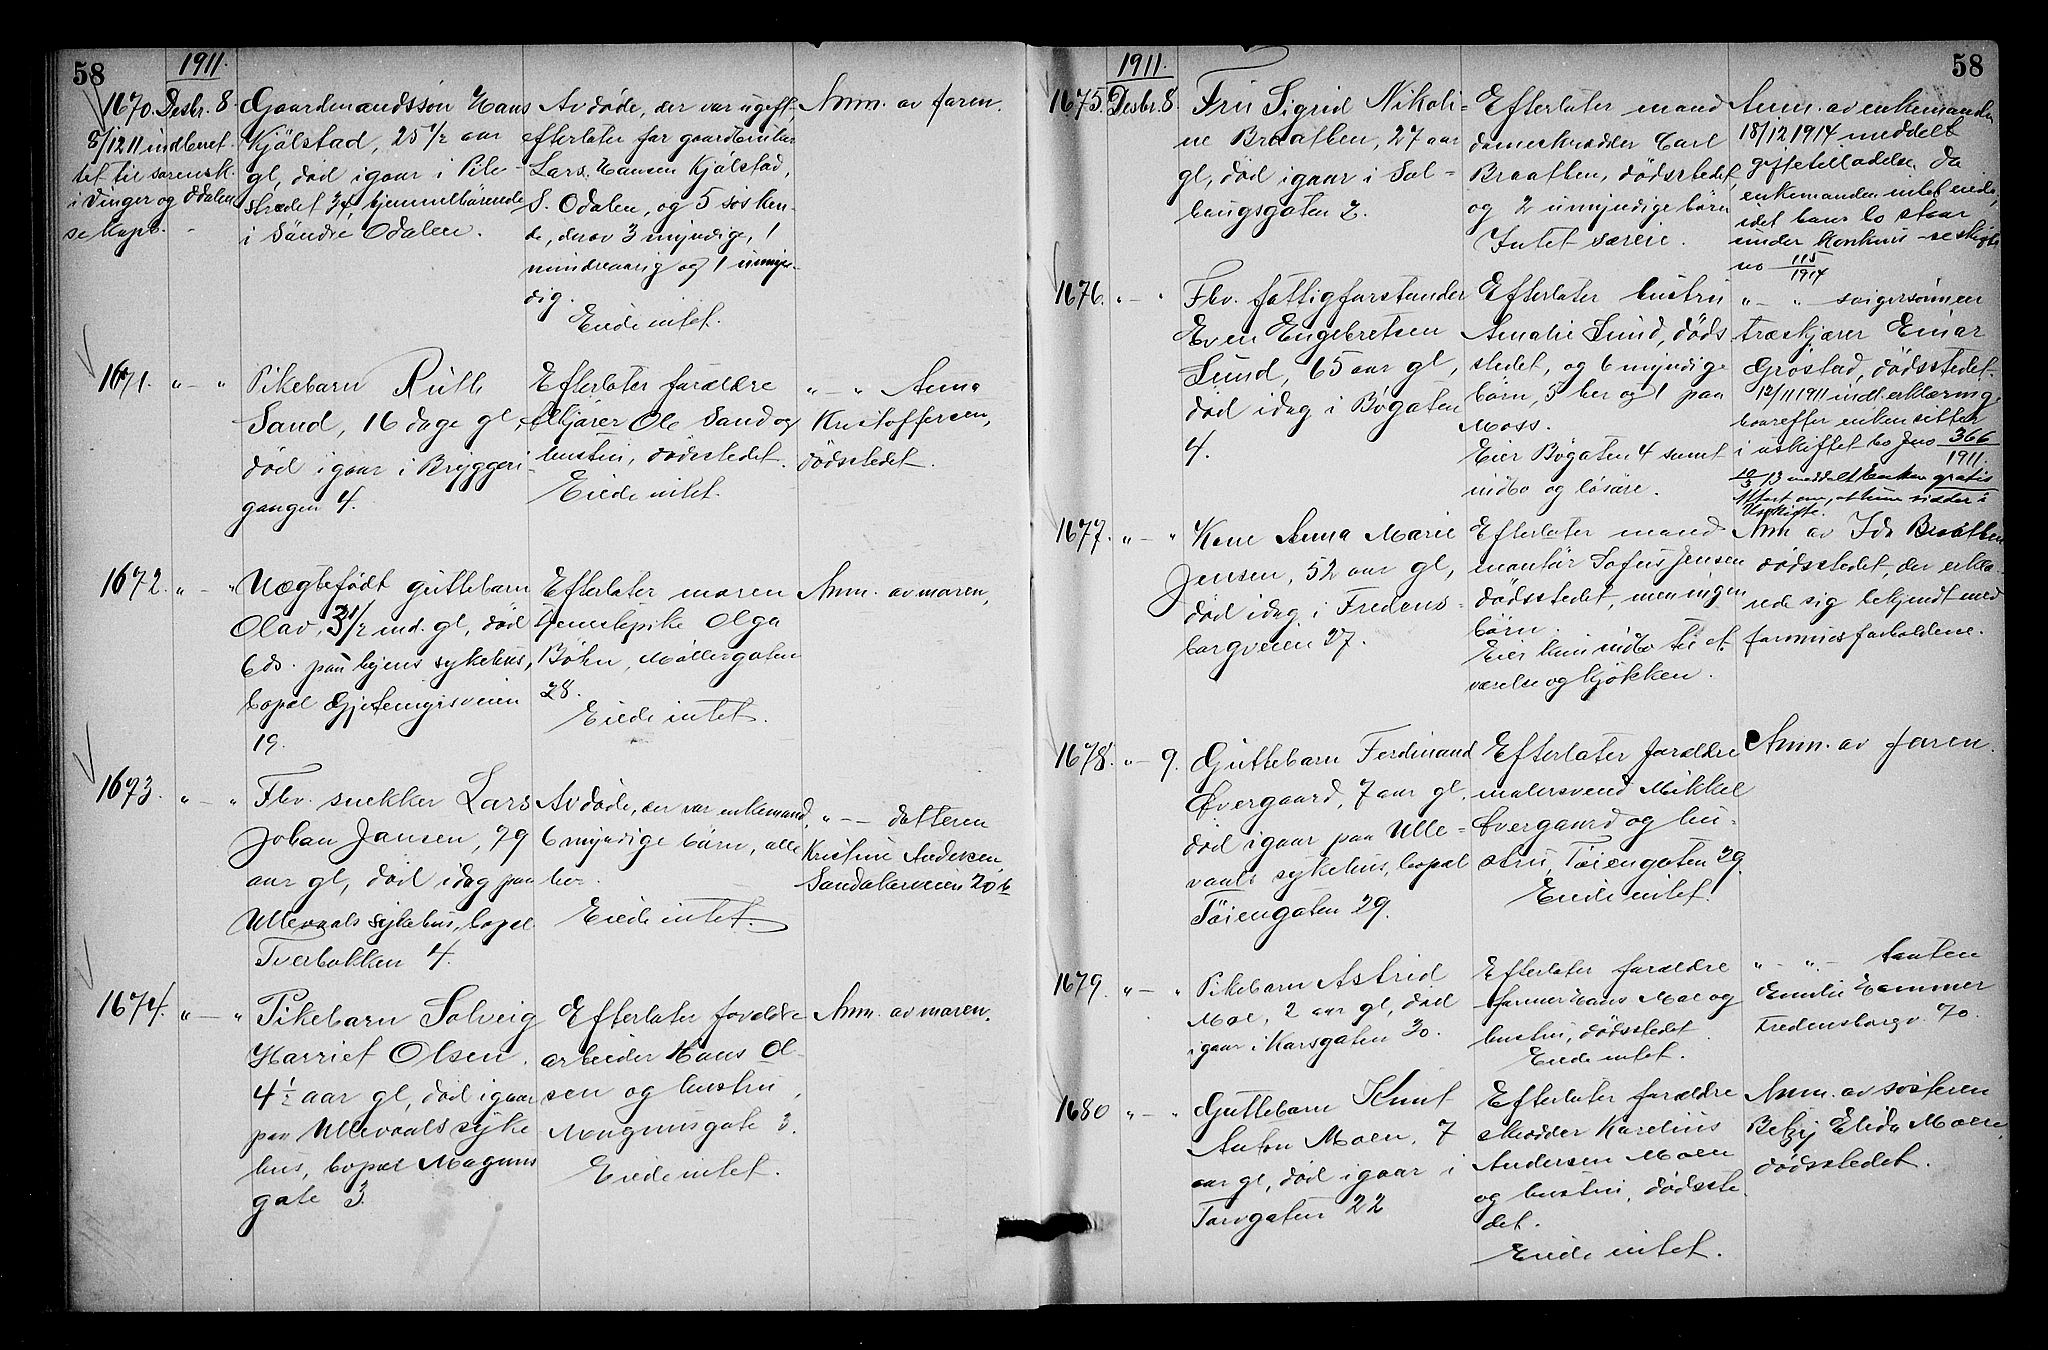 58
1911.
1670. Desbr. 8.
8/12 11 indberet-
tet til sorensk.
i Vinger og Odalen
Gaardmandssøn Hans
Kjölstad, 25 1/2 aar
gl, död igaar i Pile-
strædet 34, hjemmehörende
i Söndre Odalen.
Avdöde, der var ugift,
efterlater far gaardbruker
Lars Hansen Kjölstad,
S. Odalen, og 5 sösken-
de, derav 3 myndig, 1
mindreaarig og 1 umyn-
dig.
Eiede intet.
Anm. av faren.
1671. " — "
Pikebarn Ruth
Sand, 16 dage gl,
död igaar i Bryggeri-
gangen 4.
Efterlater forældre
Ole Sand og
hustru, dödsstedet.
Eiede intet.
" — " Anna
Kristoffersen,
dödsstedet.
1672. " — "
Uægtefödt guttebarn
Olav, 3 1/2 md. gl, död
6ds. paa byens sykehus,
bopæl Gjetemyrsveien
19.
Efterlater moren
tjenestepike Olga
Böhn, Möllergaten
28.
Eiede intet.
Anm. av moren.
1673. " — "
Fhv. snekker Lars
Johan Jansen, 79
aar gl, död idag paa
Ullevaals sykehus, bopæl
Tverbakken 4.
Avdöde, der var enkemand,
6 myndige börn, alle
her.
Eiede intet.
" — — datteren
Kristine Andersen
Sandakerveien 20 b
1674. " — "
Pikebarn Solveig
Harriet Olsen,
4 1/2 aar gl, död igaar
paa Ullevaals syke
hus, bopæl Magnus
gate 3.
Efterlater forældre
arbeider Hans Ol-
sen og hustru,
Magnusgate 3.
Eiede intet.
Anm. av moren.
1911.
58
1675. Desbr. 8.
Fru Sigrid Nikoli-
ne Braathen, 27 aar
gl, död igaar i Sol-
haugsgaten 2.
Efterlater mand
dameskrædder Carl
Braathen, dödsstedet,
og 2 umyndige börn
Intet særeie.
Anm. av enkemanden
18/12 1914 meddelt
giftetilladelse, da
enkemanden intet eiede,
idet hans bo staar
under Konkurs
no 115/1914
1676. " — "
Fhv. fattigforstander
Even Engebretsen
Lund, 65 aar gl,
död idag i Bögaten
4.
Efterlater hustru
Amalie Lund, döds
stedet, og 6 myndige
börn, 5 her og 1 paa
Moss.
Eier Bögaten 4 samt
indbo og lösöre.
" — " svigersönnen
træskjærer Einar
Gröstad, dödsstedet.
12/11 1911 indl. erklæring,
hvorefter enken sitter
i uskiftet bo Jno 366/1911.
10/5 13 meddelt enken gratis
Attest om, at hun sidder i
Uskifte.
1677. " — "
Kone Anna Marie
Jensen, 52 aar gl,
död idag i Fredens-
borgveien 27.
Efterlater mand
montör Sofus Jensen
dödsstedet, men ingen
börn.
Eier kun indbo til et
værelse og kjökken.
Anm av Ida Braathen
dödsstedet, der erklæ-
rede sig bekjendt med
formuesforholdene.
1678. " — 9.
Guttebarn Ferdinand
Övergaard, 7 aar gl,
död igaar paa Ulle-
vaals sykehus, bopæl
Töiengaten 29.
Efterlater forældre
malersvend Mikkel
Övergaard og hu-
stru, Töiengaten 29.
Eiede intet.
Anm. av faren.
1679. " — "
Pikebarn Astrid
Moe, 2 aar gl, död
igaar i Korsgaten 30.
Efterlater forældre
former Hans Moe og
hustru, dödsstedet.
Eiede intet.
" — " — tanten
Emilie Hammer
Fredensborgv. 70.
1680 " — "
Guttebarn Knut
Anton Moen, 7
aar gl, död igaar i
Torvgaten 22
Efterlater forældre
skrædder Karelius
Andersen Moen
og hustru, dödsste
det.
Eiede intet.
Anm. av sösteren
Betzy Elida Moen,
dödsstedet.